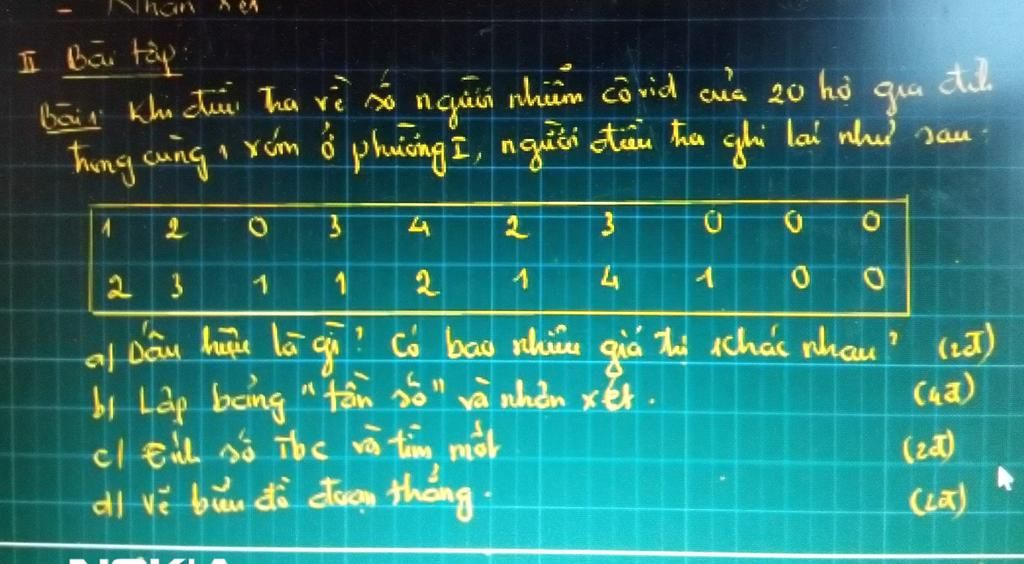 - Nhận xét
II Bài tập:
Bài 1: Khi điều tra về số người nhiễm côvid của 20 hộ gia đình
trong cùng 1 xóm ở phường I, người điều tra ghi lại như sau:
1 2 0 3 4 2 3 0 0 0
2 3 1 1 2 1 4 1 0 0
a) Dấu hiệu là gì? Có bao nhiêu giá trị khác nhau? (2đ)
b) Lập bảng "tần số" và nhận xét. (4đ)
c) Tính số Tbc và tìm mốt (2đ)
d) Vẽ biểu đồ đoạn thẳng. (2đ)
NOKIA